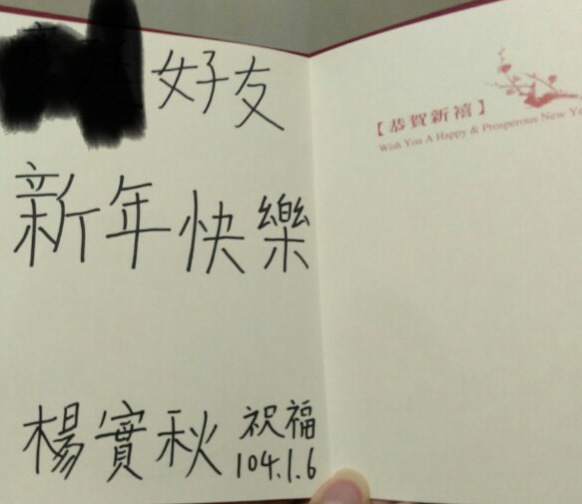 好友
新年快樂
楊實秋 祝福
104.1.6
【恭賀新禧】
Wish You A Happy & Prosperous New